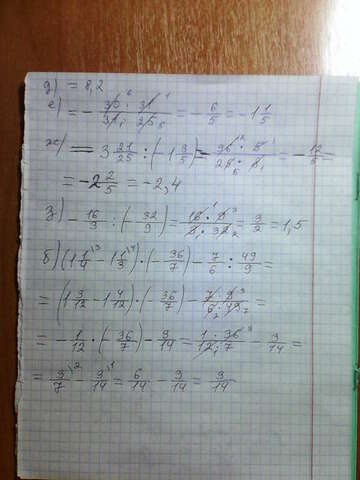 д) = 8,2
е) = - 30 · 31 / 31 · 25 = - 6/5 = -1 1/5
ж) = 3 21/25 : (-1 3/5) = 96 · 5 / 25 · 8 = - 12/5 =
= -2 2/5 = -2,4
з) - 16/3 : (- 32/9) = 16 · 9 / 3 · 32 = 3/2 = 1,5
б) (1 1/4 - 1 1/3) · (- 36/7) - 7/6 : 49/9 =
= (1 3/12 - 1 4/12) · (- 36/7) - 7 · 9 / 6 · 49 =
= - 1/12 · (- 36/7) - 3/14 = 1 · 36 / 12 · 7 - 3/14 =
= 3/7 - 3/14 = 6/14 - 3/14 = 3/14